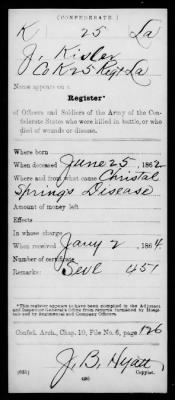 (CONFEDERATE.)
K 25 La
J. Kisler
Co K 25 Regt La
Name appears on a
Register*
of Officers and Soldiers of the Army of the Con-
federate States who were killed in battle, or who
died of wounds or disease.
Where born
When deceased June 25, 1862
Where and from what cause Christal
Springs Disease
Amount of money left
Effects
In whose charge
When received Jany 2, 1864
Number of certificate
Remarks: Sevl 451
*This register appears to have been compiled in the Adjutant
and Inspector General's Office from records furnished by Hospi-
tals and by Regimental and Company Officers.
Confed. Arch., Chap. 10, File No. 6, page 126
J. B. Hyatt
Copyist.